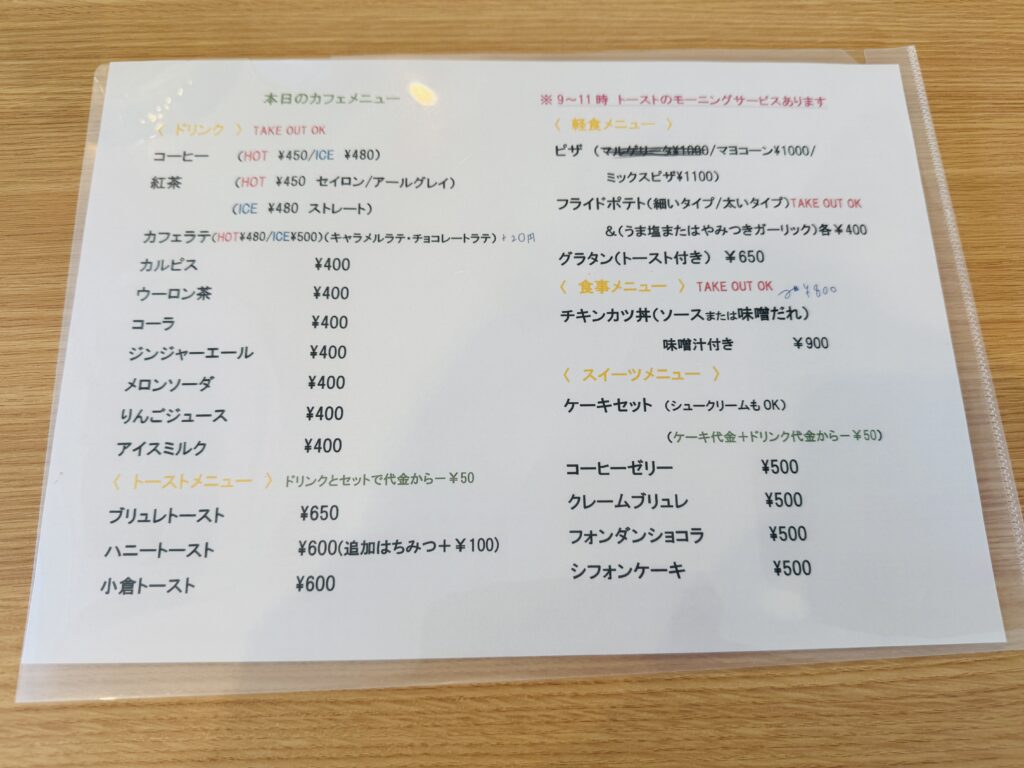 本日のカフェメニュー
〈 ドリンク 〉 TAKE OUT OK
コーヒー (HOT ¥450/ICE ¥480)
紅茶 (HOT ¥450 セイロン/アールグレイ)
(ICE ¥480 ストレート)
カフェラテ(HOT¥480/ICE¥500)(キャラメルラテ・チョコレートラテ) +20円
カルピス ¥400
ウーロン茶 ¥400
コーラ ¥400
ジンジャーエール ¥400
メロンソーダ ¥400
りんごジュース ¥400
アイスミルク ¥400
〈 トーストメニュー 〉 ドリンクとセットで代金から－￥50
ブリュレトースト ¥650
ハニートースト ¥600(追加はちみつ＋￥100)
小倉トースト ¥600
※ 9～11時 トーストのモーニングサービスあります
〈 軽食メニュー 〉
ピザ (マルゲリータ¥1000/マヨコーン¥1000/
ミックスピザ¥1100)
フライドポテト(細いタイプ/太いタイプ)TAKE OUT OK
＆(うま塩またはやみつきガーリック)各￥400
グラタン(トースト付き) ￥650
〈 食事メニュー 〉 TAKE OUT OK ¥800
チキンカツ丼(ソースまたは味噌だれ)
味噌汁付き ￥900
〈 スイーツメニュー 〉
ケーキセット (シュークリームもOK)
(ケーキ代金＋ドリンク代金から－￥50)
コーヒーゼリー ¥500
クレームブリュレ ¥500
フォンダンショコラ ¥500
シフォンケーキ ¥500